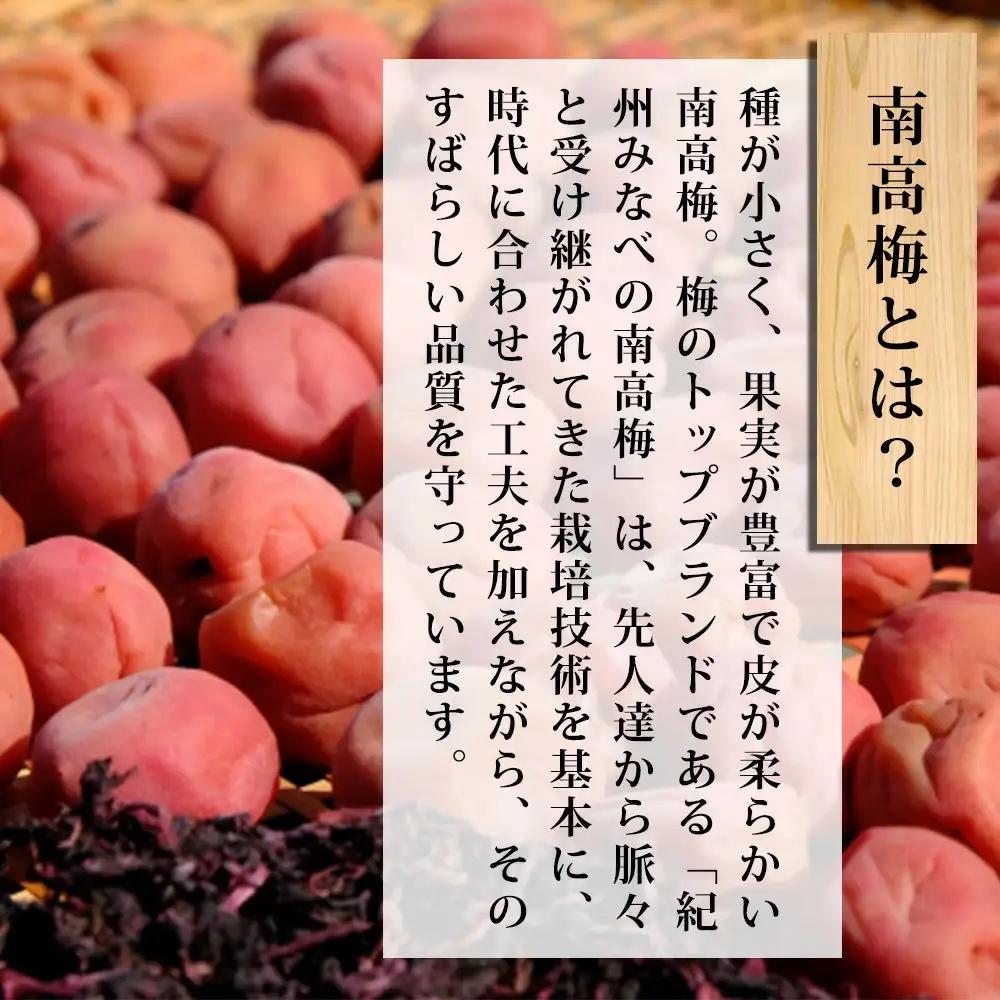 南高梅とは？
種が小さく、果実が豊富で皮が柔らかい
南高梅。梅のトップブランドである「紀
州みなべの南高梅」は、先人達から脈々
と受け継がれてきた栽培技術を基本に、
時代に合わせた工夫を加えながら、その
すばらしい品質を守っています。